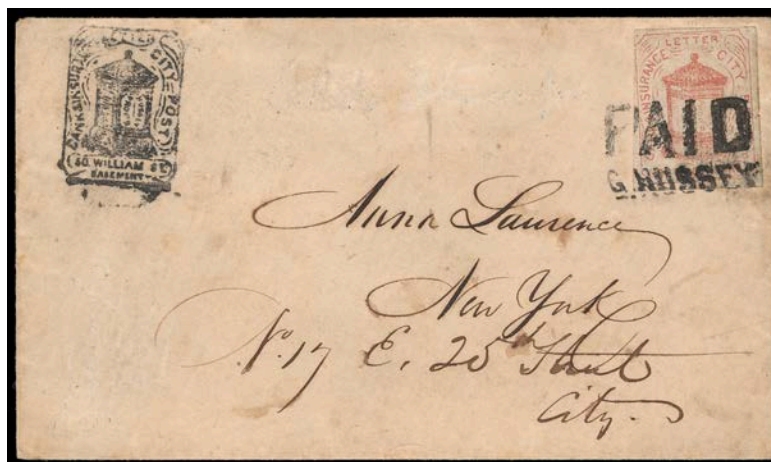 BANK & INSURANCE LETTER CITY POST
50. WILLIAM ST
BASEMENT
INSURANCE LETTER CITY
PAID
G. HUSSEY
Anna Laurence
New York
No. 17 E. 25th Street
City.